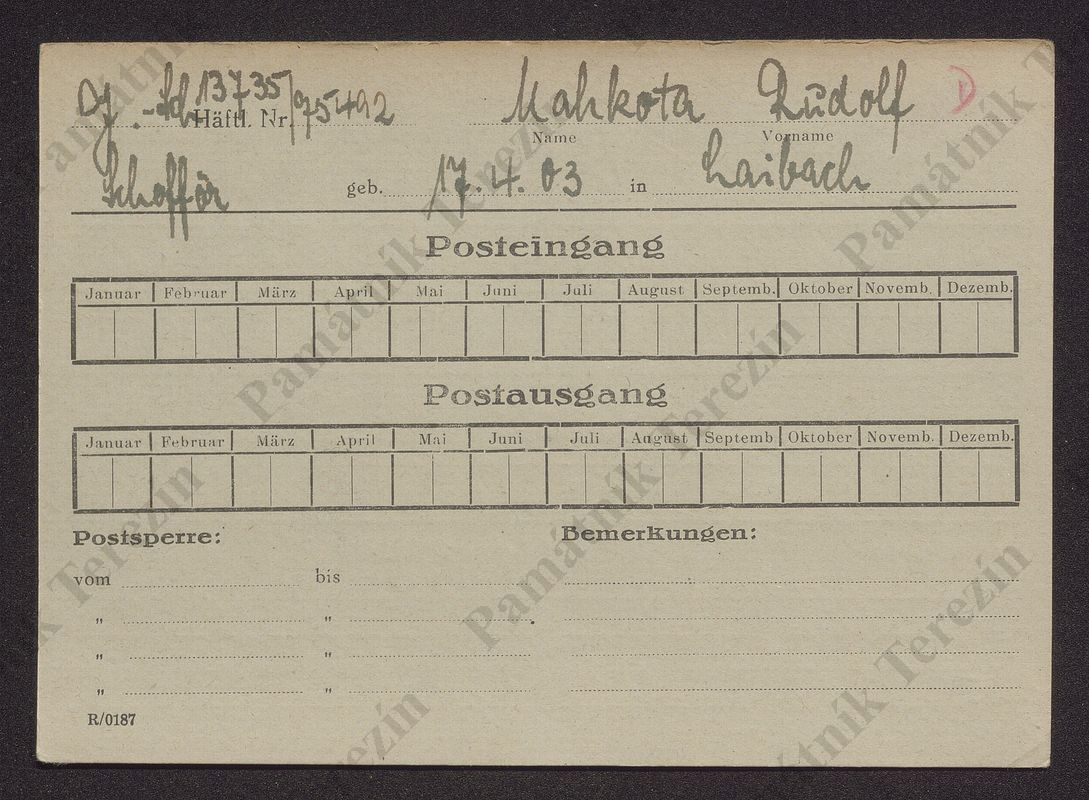 Jg.-Sch. 13735/75492 Mahkota Rudolf D
Häftl. Nr. Name Vorname
Schofför geb. 17.4.03 in Laibach
Posteingang
Januar Februar März April Mai Juni Juli August Septemb. Oktober Novemb. Dezemb.
Postausgang
Januar Februar März April Mai Juni Juli August Septemb Oktober Novemb. Dezemb.
Postsperre: Bemerkungen:
vom bis
" "
" "
" "
R/0187
Památník Terezín